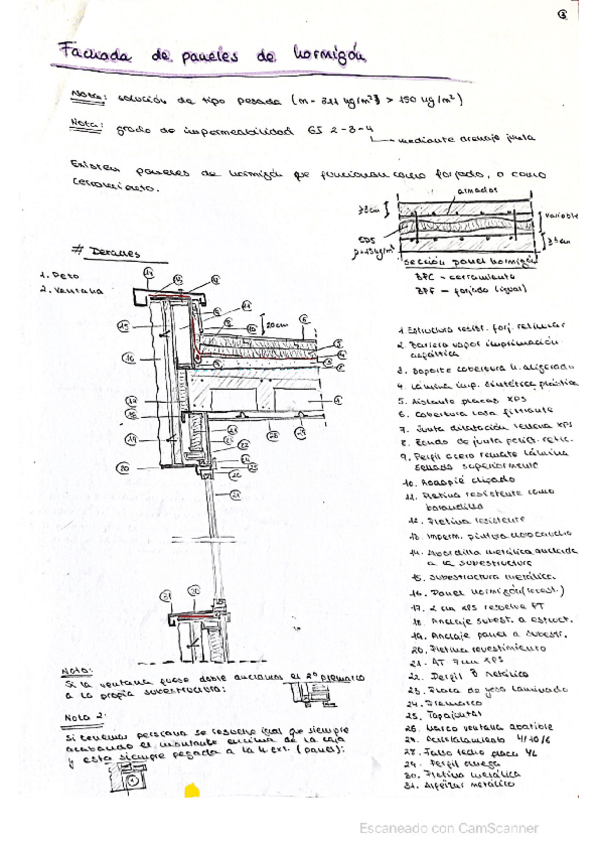 Fachada de paneles de hormigón
Nota: solución de tipo pesada (m= 311 kg/m²) > 150 kg/m²)
Nota: grado de impermeabilidad GI 2-3-4
mediante drenaje junta
Existen paneles de hormigón que funcionan como forjado, o como
cerramiento.
armados
variable
sección panel hormigón
BPC - cerramiento
BPF - forjado (igual)
# Detalles
1. Peto
2. Ventana
20cm
1. Estructura resist. forj. reticular
2. Barrera vapor imprimación
asfáltica
3. Soporte cobertura h. aligerado
4. Lámina imp. sintética plástica
5. Aislante placas XPS
6. Cobertura losa filtrante
7. Junta dilatación rellena XPS
8. Fondo de junta polie. retic.
9. Perfil acero remate lámina
sellado superiormente
11. Pletina resistente como
barandilla
12. Pletina resistente
13. Imperm. pintura clorocaucho
14. Albardilla metálica anclada
a la subestructura
15. Subestructura metálica
16. Panel hormigón (revest.)
17. 2 cm XPS resuelve PT
18. Anclaje subest. a estruct.
19. Anclaje panel a subestr.
20. Pletina revestimiento
21. AT 7 cm XPS
22. Perfil metálico
23. Placa de yeso laminado
24. Premarco
25. Tapajuntas
26. Marco ventana abatible
27. Acristalamiento 4/10/6
28. Falso techo placa YL
29. Perfil omega
30. Pletina metálica
31. Alféizar metálico
Nota:
Si la ventana fuese doble anclamos el 2º premarco
a la propia subestructura:
Nota 2:
Si tenemos persiana se resuelve igual que siempre
acabando el montante encima de la caja
y esta siempre pegada a la h. ext. (panel):
Escaneado con CamScanner